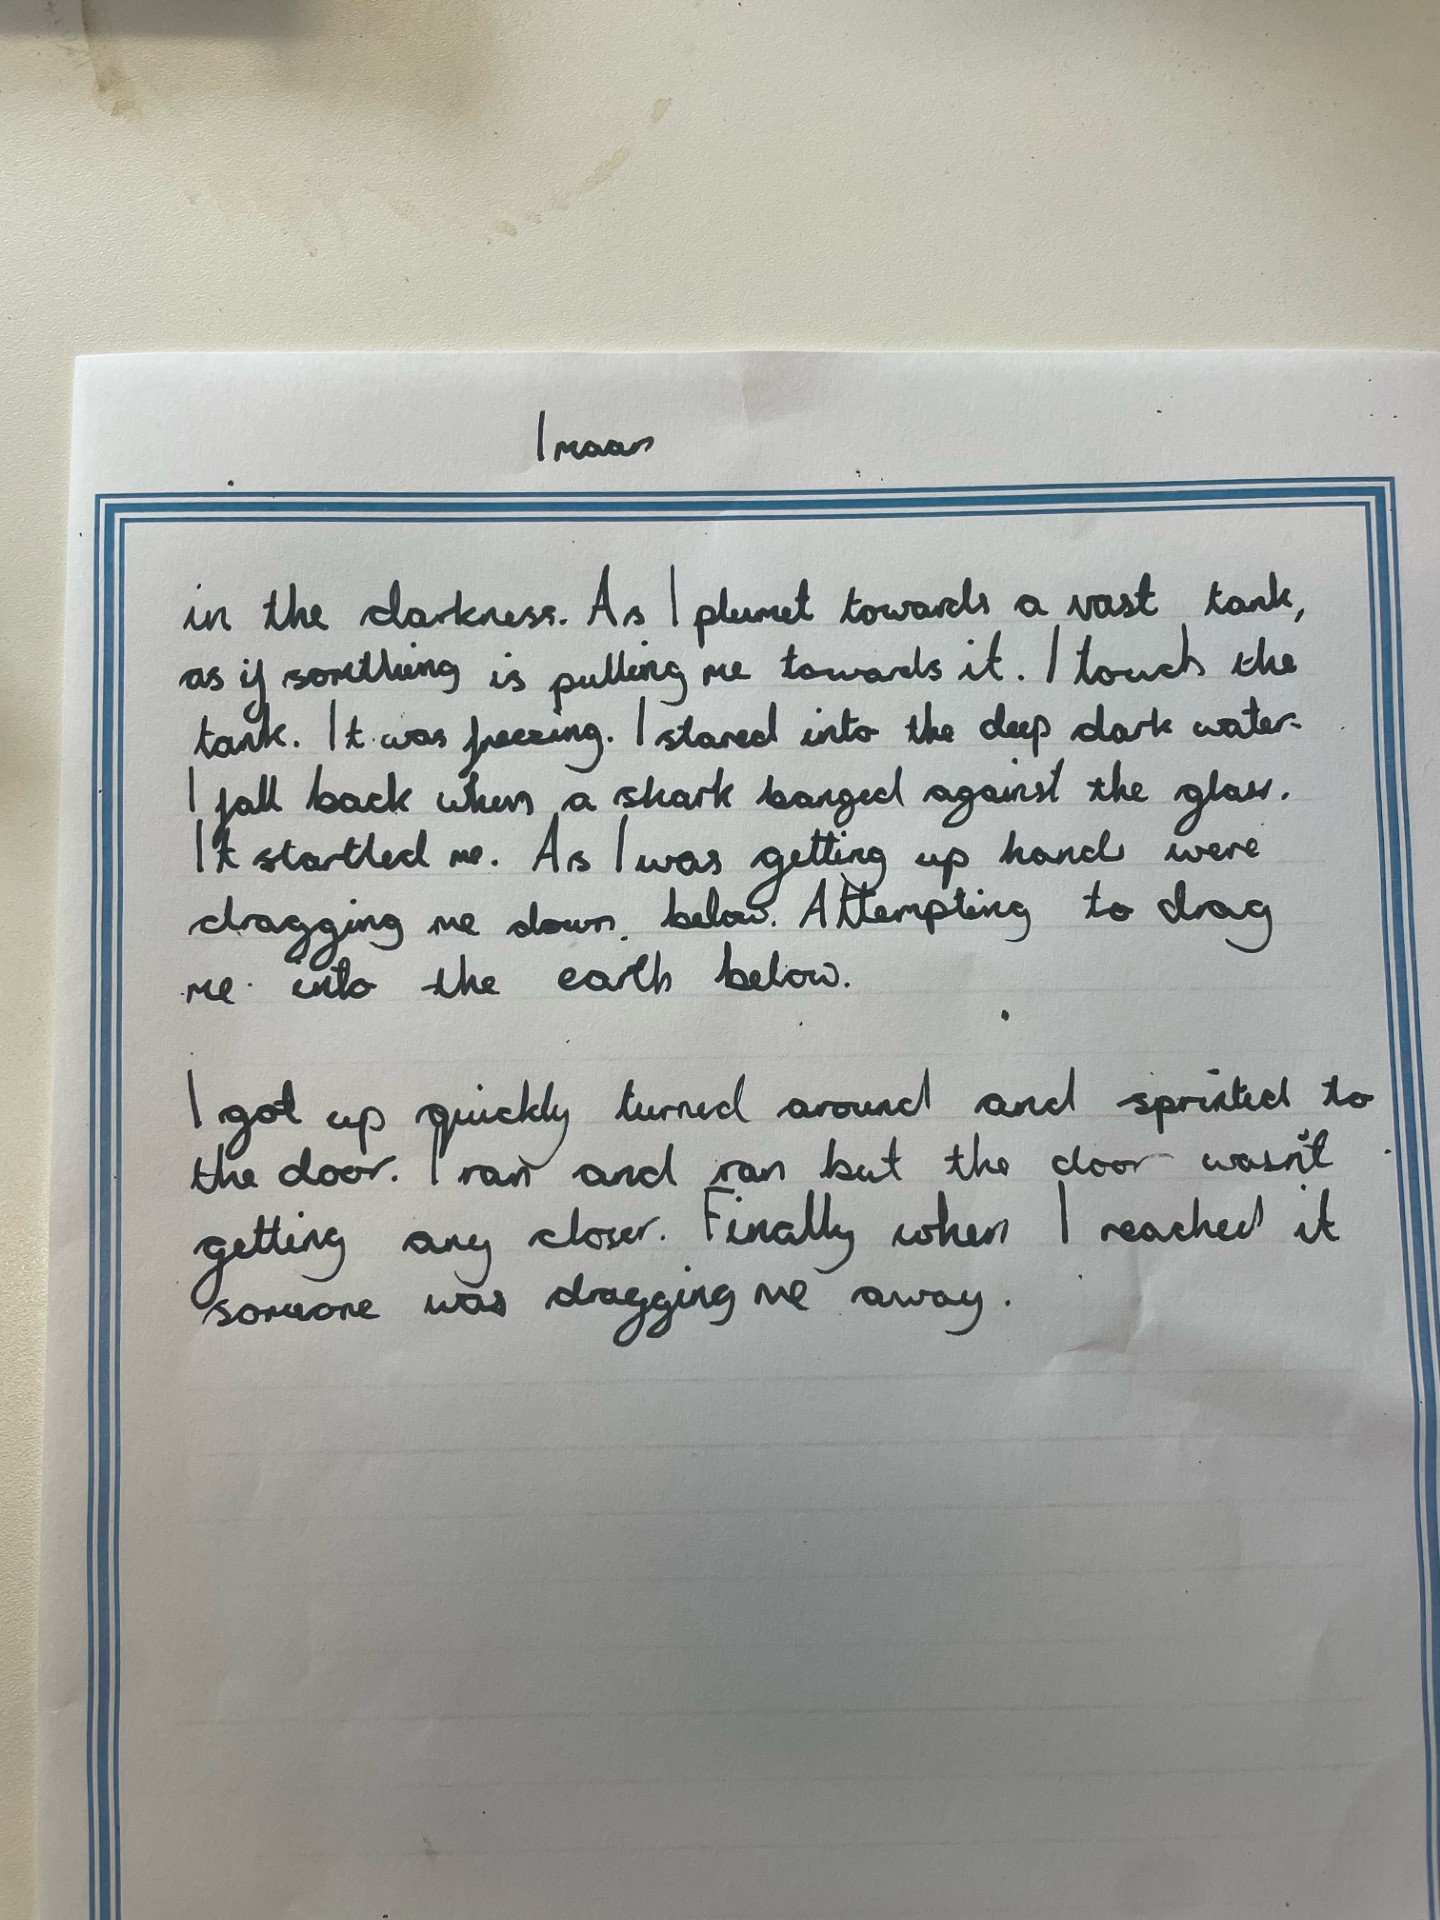 Imaan
in the darkness. As I plumet towards a vast tank,
as if somthing is pulling me towards it. I touch the
tank. It was freezing. I stared into the deep dark water.
I fall back when a shark banged against the glass.
It startled me. As I was getting up hands were
dragging me down below. Attempting to drag
me into the earth below.
I got up quickly turned around and sprinted to
the door. I ran and ran but the door wasn't
getting any closer. Finally when I reached it
someone was dragging me away.